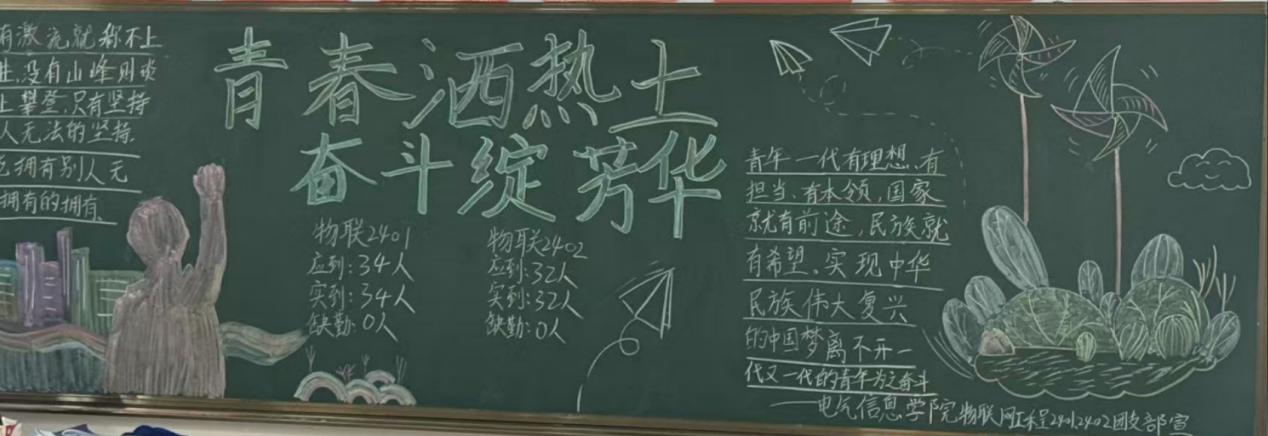 有激流就称不上
进,没有山峰则谈
上攀登,只有坚持
人无法的坚持,
能拥有别人无
拥有的拥有。
青春洒热土
奋斗绽芳华
物联2401
应到:34人
实到:34人
缺勤:0人
物联2402
应到:32人
实到:32人
缺勤:0人
青年一代有理想、有
担当、有本领,国家
就有前途,民族就
有希望、实现中华
民族伟大复兴
的中国梦离不开一
代又一代的青年为之奋斗
——电气信息学院物联网工程2401,2402团支部宣